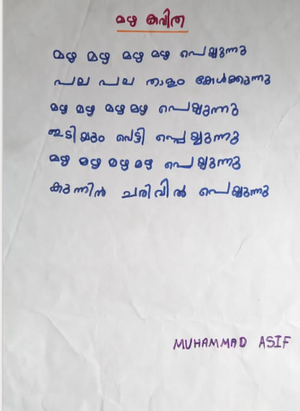 മഴ കവിത
മഴ മഴ മഴ മഴ പെയ്യുന്നു
പല പല താളം കേൾക്കുന്നു
മഴ മഴ മഴ മഴ പെയ്യുന്നു
ഇടിയും വെട്ടി പ്പെയ്യുന്നു
മഴ മഴ മഴ മഴ പെയ്യുന്നു
കുന്നിൻ ചരിവിൽ പെയ്യുന്നു
MUHAMMAD ASIF